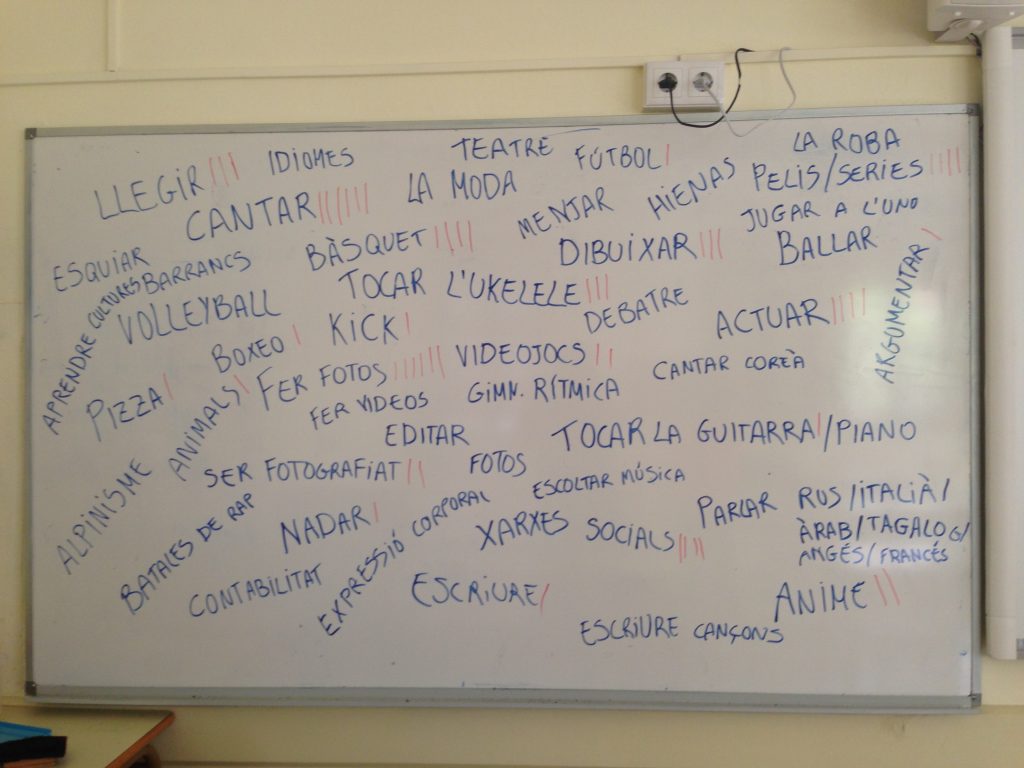 LLEGIR |||
IDIOMES
TEATRE
FÚTBOL |
LA ROBA
CANTAR ||||||
LA MODA
MENJAR
HIENAS
PELIS/SERIES ||||
JUGAR A L'UNO
ESQUIAR
BARRANCS
BÀSQUET ||||
DIBUIXAR |||
BALLAR
APRENDRE CULTURES
VOLLEYBALL
TOCAR L'UKELELE |||
DEBATRE
ACTUAR ||||
ARGUMENTAR |
BOXEO |
KICK |
PIZZA |
ANIMALS |
FER FOTOS ||||||
VIDEOJOCS ||
CANTAR COREÀ
FER VIDEOS
GIMN. RÍTMICA
EDITAR
TOCAR LA GUITARRA |/PIANO
ALPINISME
SER FOTOGRAFIAT ||
FOTOS
ESCOLTAR MÚSICA
BATALES DE RAP
NADAR |
EXPRESSIÓ CORPORAL
XARXES SOCIALS ||||
PARLAR RUS/ITALIÀ/
ÀRAB/TAGALOG/
ANGÉS/FRANCÉS
CONTABILITAT
ESCRIURE |
ANIME ||
ESCRIURE CANÇONS